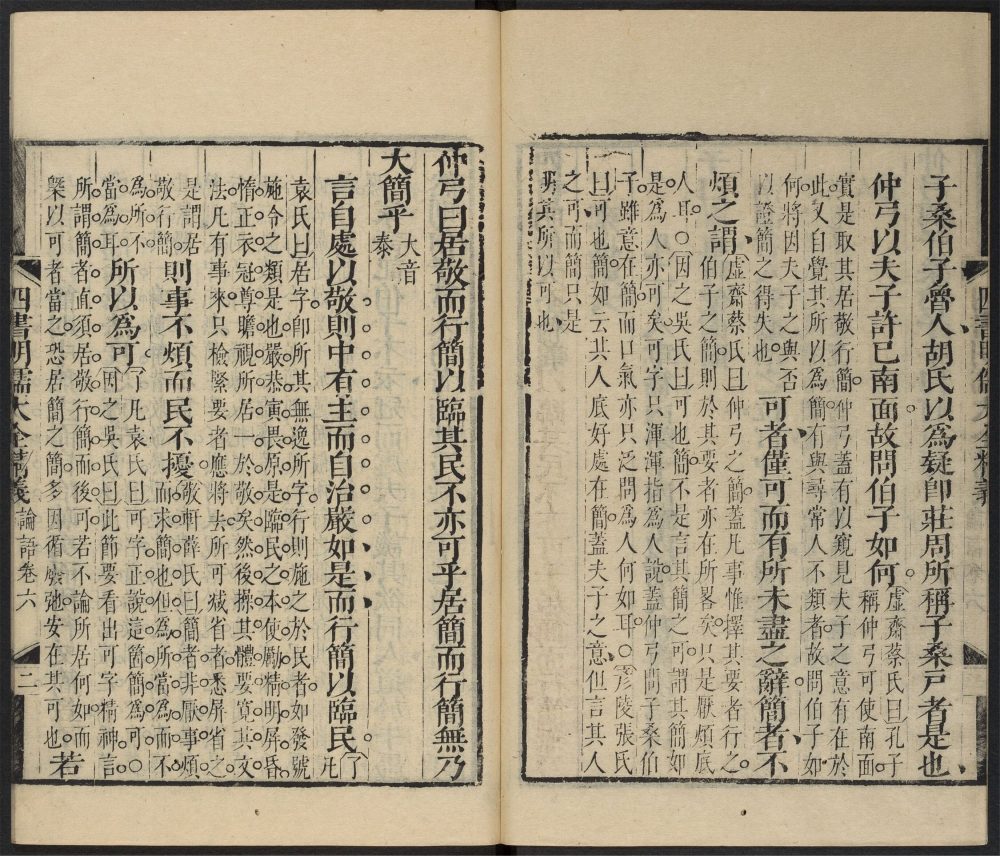 子桑伯子魯人胡氏以爲疑卽莊周所稱子桑戶者是也
仲弓以夫子許已南面故問伯子如何
虛齋蔡氏曰孔子
稱仲弓可使南面
實是取其居敬行簡仲弓蓋有以窺見夫子之意有在於
此又自覺其所以爲簡有與尋常人不類者故問伯子如
何將因夫子之與否
以證簡之得失也
可者僅可而有所未盡之辭簡者不
煩之謂
虛齋蔡氏曰仲弓之簡蓋凡事惟擇其要者行之
伯子之簡則於其要者亦在所畧矣只是厭煩底
人耳○因之吳氏曰可也簡不是言其簡之可謂其簡如
是爲人亦可矣可字只渾渾指爲人說蓋仲弓問子桑伯
子雖意在簡而口氣亦只泛問爲人何如耳○彥陵張氏
曰可也簡如云其人底好處在簡蓋夫子之意但言其人
之可而簡只是
明其所以可也
四書明儒大全精義
仲弓曰居敬而行簡以臨其民不亦可乎居簡而行簡無乃
大簡乎
大音
泰
言自處以敬則中有主而自治嚴如是而行簡以臨民
了
凡
袁氏曰居字卽所其無逸所字行則施之於民者如發號
施令之類是也嚴恭寅畏原是臨民之本使勵精明屏昏
惰正衣冠尊瞻視所居一於敬矣然後操其體要寬其文
法凡有事來只檢緊要者應將去所可減省者悉屏省之
是謂居
敬行簡
則事不煩而民不擾
敬軒薛氏曰簡者非厭事煩
而求簡也但爲所當爲而
爲所不
當爲耳
所以爲可
了凡袁氏曰可字正說這箇簡爲可○
因之吳氏曰此節要看出可字精神言
所謂簡者直須居敬行簡而後可若不論所居何如而
槩以可者當之恐居簡之簡多因循廢弛安在其可也
若
四書明儒大全精義 論語卷六 二